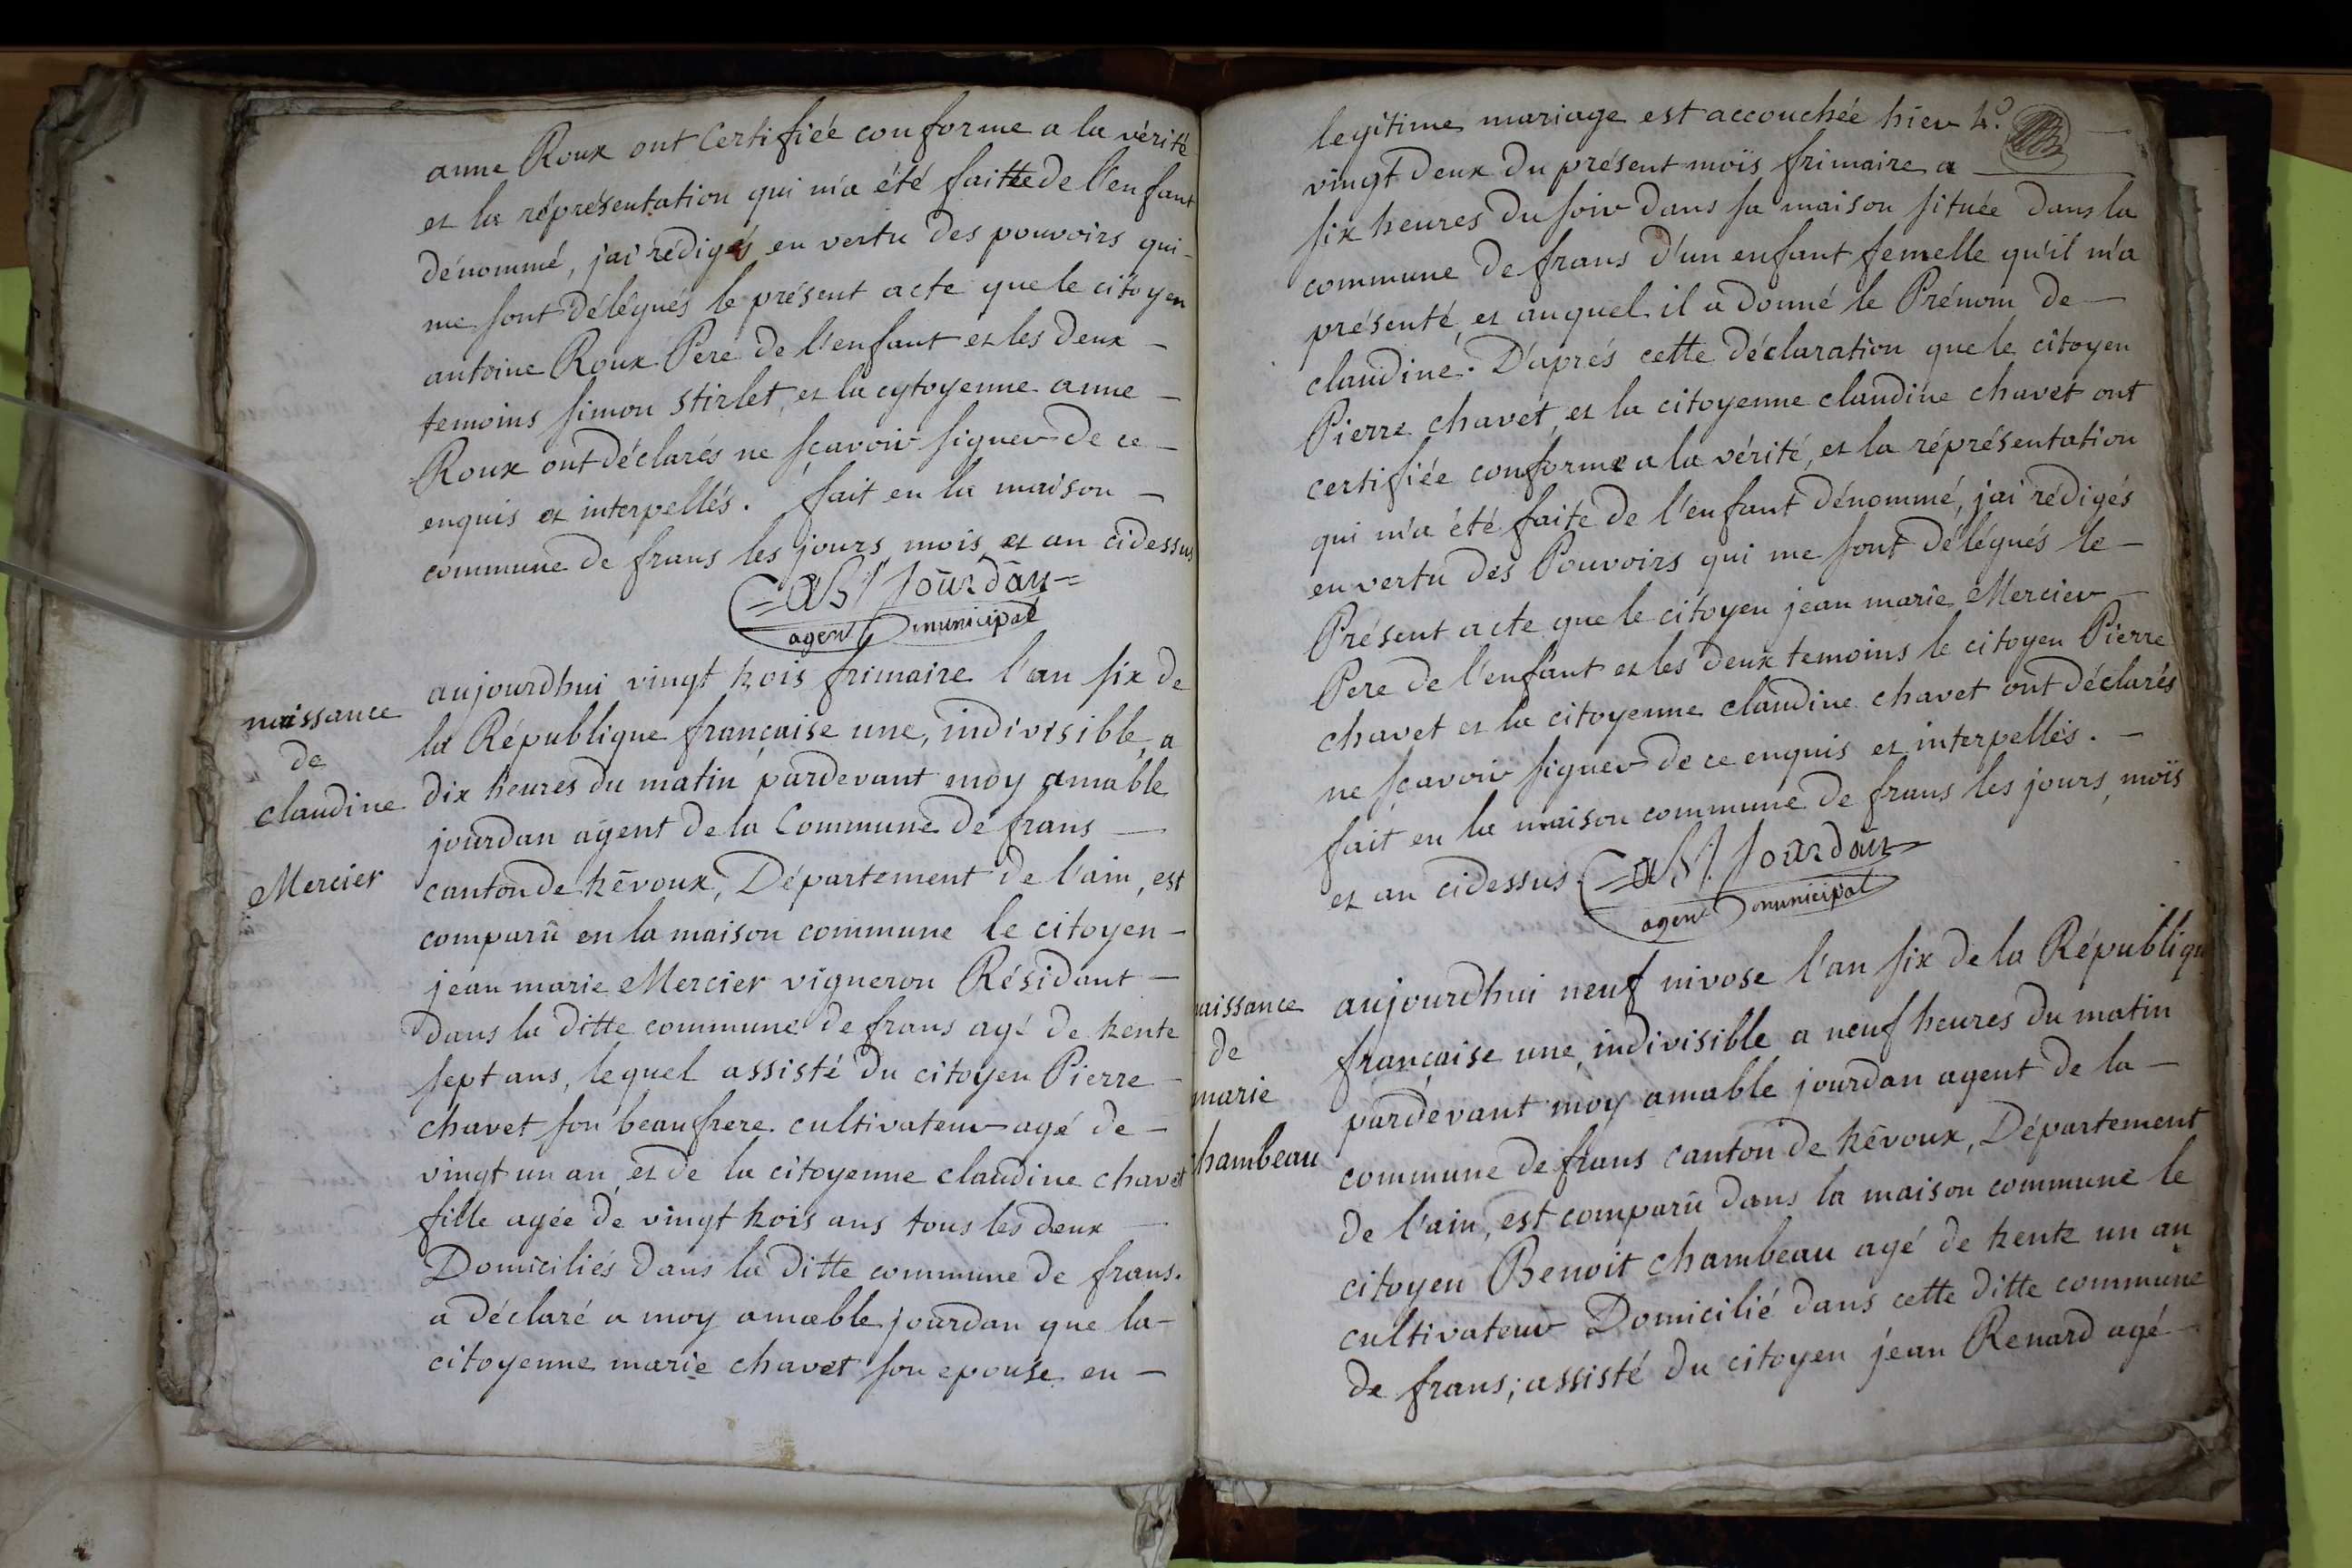 anne Roux ont Certifiée conforme a la vérité
et la réprésentation qui m'a été faitte de l'enfant
dénommé, jai rédigés en vertu des pouvoirs qui -
me sont délégués le présent acte que le citoyen
antoine Roux Pere de l'enfant et les deux -
temoins simon stirlet, et la cytoyenne anne -
Roux ont déclarés ne sçavoir signer de ce -
enquis et interpellés. fait en la maison -
commune de frans les jours, mois et an cidessus
jourdan
agent municipal
naissance
de
claudine
Mercier
aujourdhui vingt trois frimaire l'an six de
la République française une, indivisible, a
dix heures du matin pardevant moy amable
jourdan agent de la Commune de frans -
canton de trévoux, Département de l'ain, est
comparû en la maison commune le citoyen -
jean marie Mercier vigneron Résidant -
dans la ditte commune de frans agé de trente
sept ans, lequel assisté du citoyen Pierre -
chavet son beaufrere cultivateur agé de -
vingt un an, et de la citoyenne claudine chavet
fille agée de vingt trois ans tous les deux -
Domiciliés dans la ditte commune de frans.
a déclaré a moy amable jourdan que la -
citoyenne marie chavet son epouse en -
legitime mariage est accouchée hier 4.e
vingt deux du présent moïs frimaire a
six heures du soir dans sa maison située dans la
commune de frans d'un enfant femelle qu'il m'a
présenté, et auquel il a donné le Prénom de -
claudine. D'aprés cette déclaration que le citoyen
Pierre chavet, et la citoyenne claudine chavet ont
certifiée conforme a la vérité, et la réprésentation
qui m'a été faite de l'enfant dénommé, jai rédigés
en vertu des Pouvoirs qui me sont délégués le -
Présent acte que le citoyen jean marie Mercier -
Pere de l'enfant et les deux temoins le citoyen Pierre
chavet et la citoyenne claudine chavet ont déclarés
ne sçavoir signer de ce enquis et interpellés. -
fait en la maison commune de frans les jours, moïs
et an cidessus.
jourdan
agent municipal
naissance
de
marie
chambeau
aujourdhui neuf nivose l'an six de la République
française une, indivisible a neuf heures du matin
pardevant moy amable jourdan agent de la -
commune de frans canton de trévoux, Département
de l'ain, est comparû dans la maison commune le
citoyen Benoit chambeau agé de trente un an
cultivateur Domicilié dans cette ditte commune
de frans; assisté du citoyen jean Renard agé -